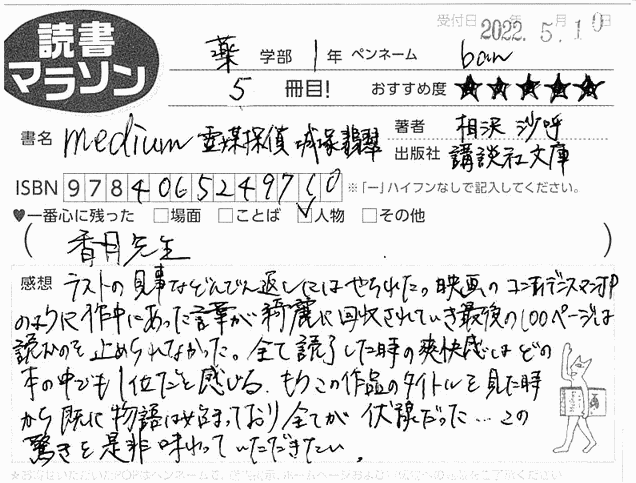 読書
マラソン
受付日 2022年 5月 10日
薬 学部 1年 ペンネーム ban
5 冊目! おすすめ度 ★★★★★
書名 medium 霊媒探偵 城塚翡翠
著者 相沢 沙呼
出版社 講談社文庫
ISBN 9784065249710 ※「-」ハイフンなしで記入してください。
♥一番心に残った □場面 □ことば ☑人物 □その他
( 香月先生 )
感想 ラストの見事などんでん返しにはやられた。映画のコンフィデンスマンJP
のように作中にあった言葉が綺麗に回収されていき最後の100ページは
読むのを止められなかった。全て読了した時の爽快感はどの
本の中でも1位だと感じる。もうこの作品のタイトルを見た時
から既に物語は始まっており全てが伏線だった…この
驚きを是非味わっていただきたい。